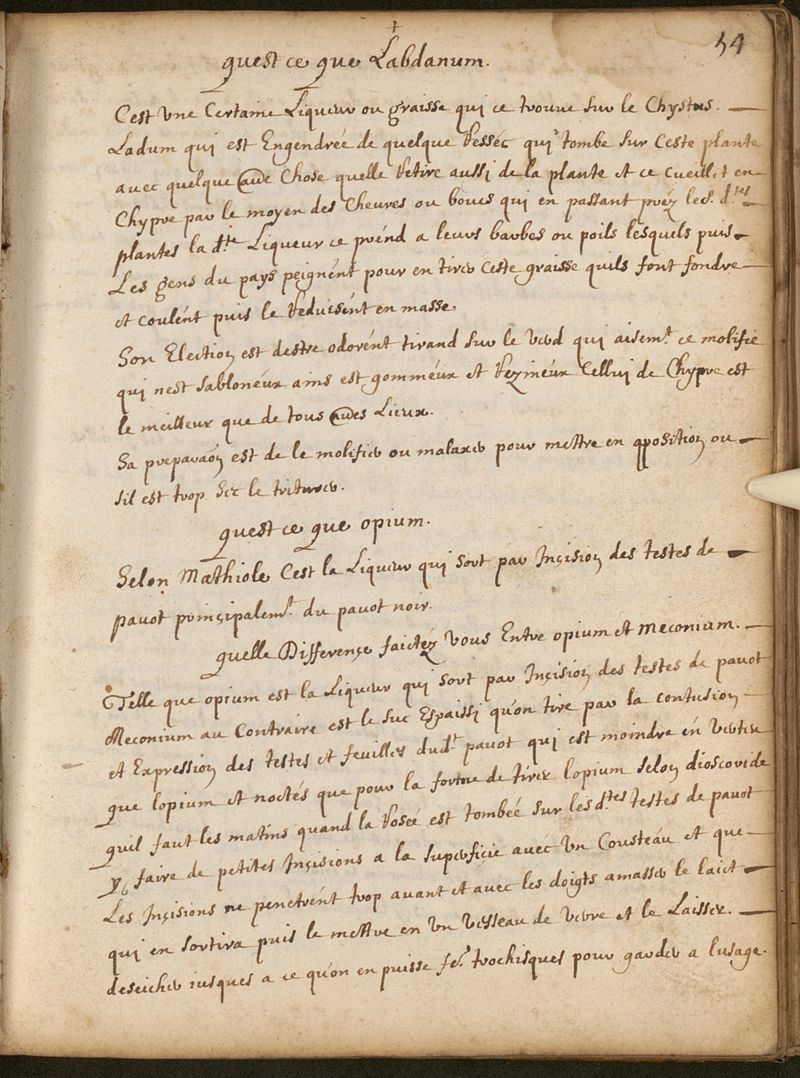 54
quest ce que Labdanum.
Cest vne Certaine Liqueur ou graisse qui ce trouue sur le Chystus.
Ladum qui est Engendrée de quelque Rosséé qui tombe sur Ceste plante
auec quelque aue Chose quelle Retire aussi de la plante et ce cueillet en
Chypre par le moyen des Cheures ou boucs qui en passant préz les d.tes
plantes la d.te Liqueur ce prénd a leurs barbes ou poils lesquels puis
Les gens du pays peignént pour en tirer Ceste graisse quils font fondre
et coulént puis le Reduisént en masse.
Son Election est destre odorént tirand sur le verd qui aisem.t ce molifie
qui nest sabloneux ains est gommeux et Rezineux Celluy de Chypre est
le meilleur que de tous aues Lieux.
Sa preparaõn est de le molifier ou malaxer pour mettre en qposition ou
sil est trop Sec le triturer.
quest ce que opium.
Selon Mathiole Cest la Liqueur qui sort par Inçision des testes de
pauot prinçipalem.t du pauot noir.
quelle Differençe faictez vous Entre opium et meconium.
Telle que opium est la Liqueur qui sort par Inçision des testes de pauot
Meconium au Contraire est le suc Espaissi qu'on tire par la contusion
et Expression des testes et feuilles dud.t pauot qui est moindre en vertu
que lopium et noctés que pour la forme de tirer lopium selon dioscoride
quil faut les matins quand la Rosée est tombéé sur lés d.tes testes de pauot
y faire de petites Inçisions a la superficie auec vn Cousteau et que
Les Inçisions ne penetrént trop auant et auec les doigts amasser le laict
qui en sortira puis le mettre en vn vesseau de verre et le Laisser.
deseicher iusques a ce qu'on en puisse fe.r trochisques pour garder a lusage.